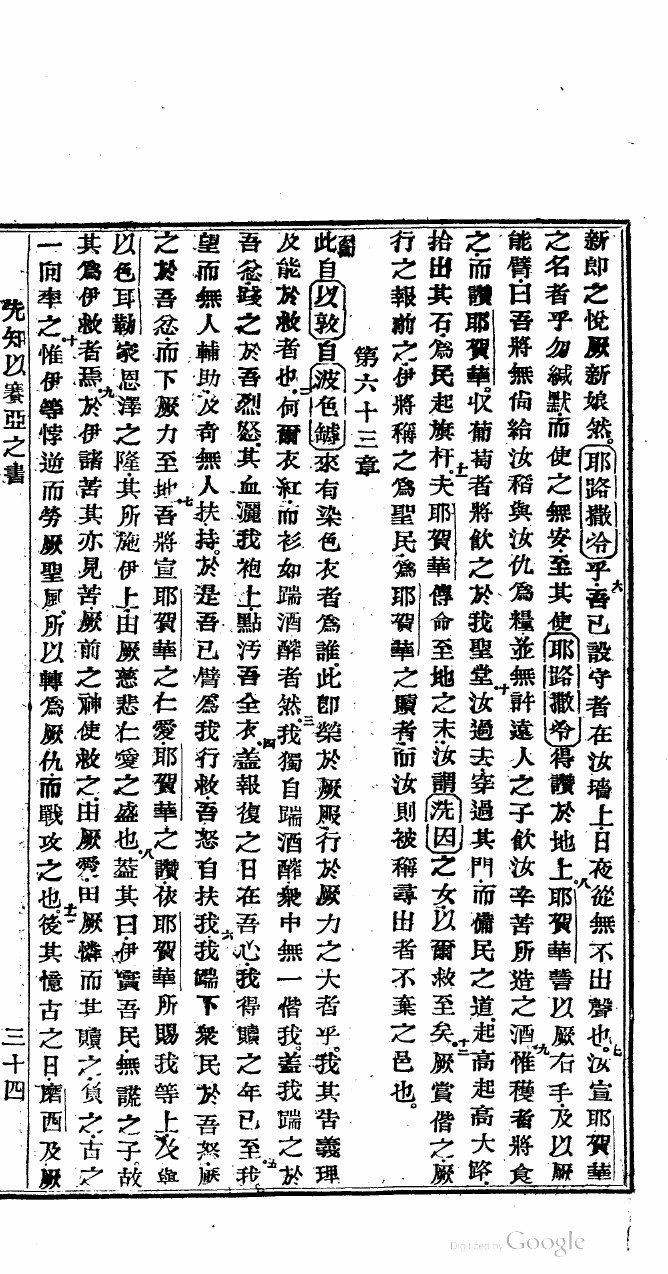 新郎之悅厥新娘然。耶路撒冷乎、吾已設守者在汝墻上、日夜從無不出聲也。汝宣耶賀華
之名者乎、勿緘默、而使之無安、至其使耶路撒冷得讚於地上。耶賀華誓以厥右手、及以厥
能臂、曰、吾將無尙給汝稻與汝仇爲糧、並無許遠人之子飲汝辛苦所造之酒。惟穫者將食
之、而讚耶賀華。収葡萄者將飲之於我聖堂。汝過去、穿過其門、而備民之道。起高起高大路、
拾出其石、爲民起旗杆。夫耶賀華傳命至地之末、汝謂洗因之女、以爾救至矣。厥賞偕之、厥
行之報前之。伊將稱之爲聖民、爲耶賀華之贖者、而汝則被稱尋出者、不棄之邑也。
第六十三章
此自以敦自波色鑪來、有染色衣者爲誰、此即榮於厥服、行於厥力之大者乎。我其吿義理
及能於救者也。何爾衣紅、而衫如踹酒醡者然。我獨自踹酒醡、衆中無一偕我。蓋我踹之於
吾忿、踐之於吾烈怒、其血灑我袍上、點汚吾全衣。蓋報復之日在吾心、我得贖之年已至。我
望而無人輔助、及奇無人扶持。於是吾已臂爲我行救、吾怒自扶我。我踹下衆民於吾怒、厥
之於吾忿、而下厥力至地。吾將宣耶賀華之仁愛、耶賀華之讚、依耶賀華所賜我等上、及與
以色耳勒家恩澤之隆、其所施伊上、由厥慈悲仁愛之盛也。蓋其曰、伊實吾民、無謊之子、故
其爲伊救者焉。於伊諸苦、其亦見苦、厥前之神使救之。由厥愛、由厥憐而其贖之、負之、古之
一向率之。惟伊等悖逆而勞厥聖風、所以轉爲厥仇、而戰攻之也。後其憶古之日、磨西及厥
先知以賽亞之書
三十四
六
七
八
九
十
十一
十二
二
三
四
五
六
七
八
九
十
十一
Digitized by Google